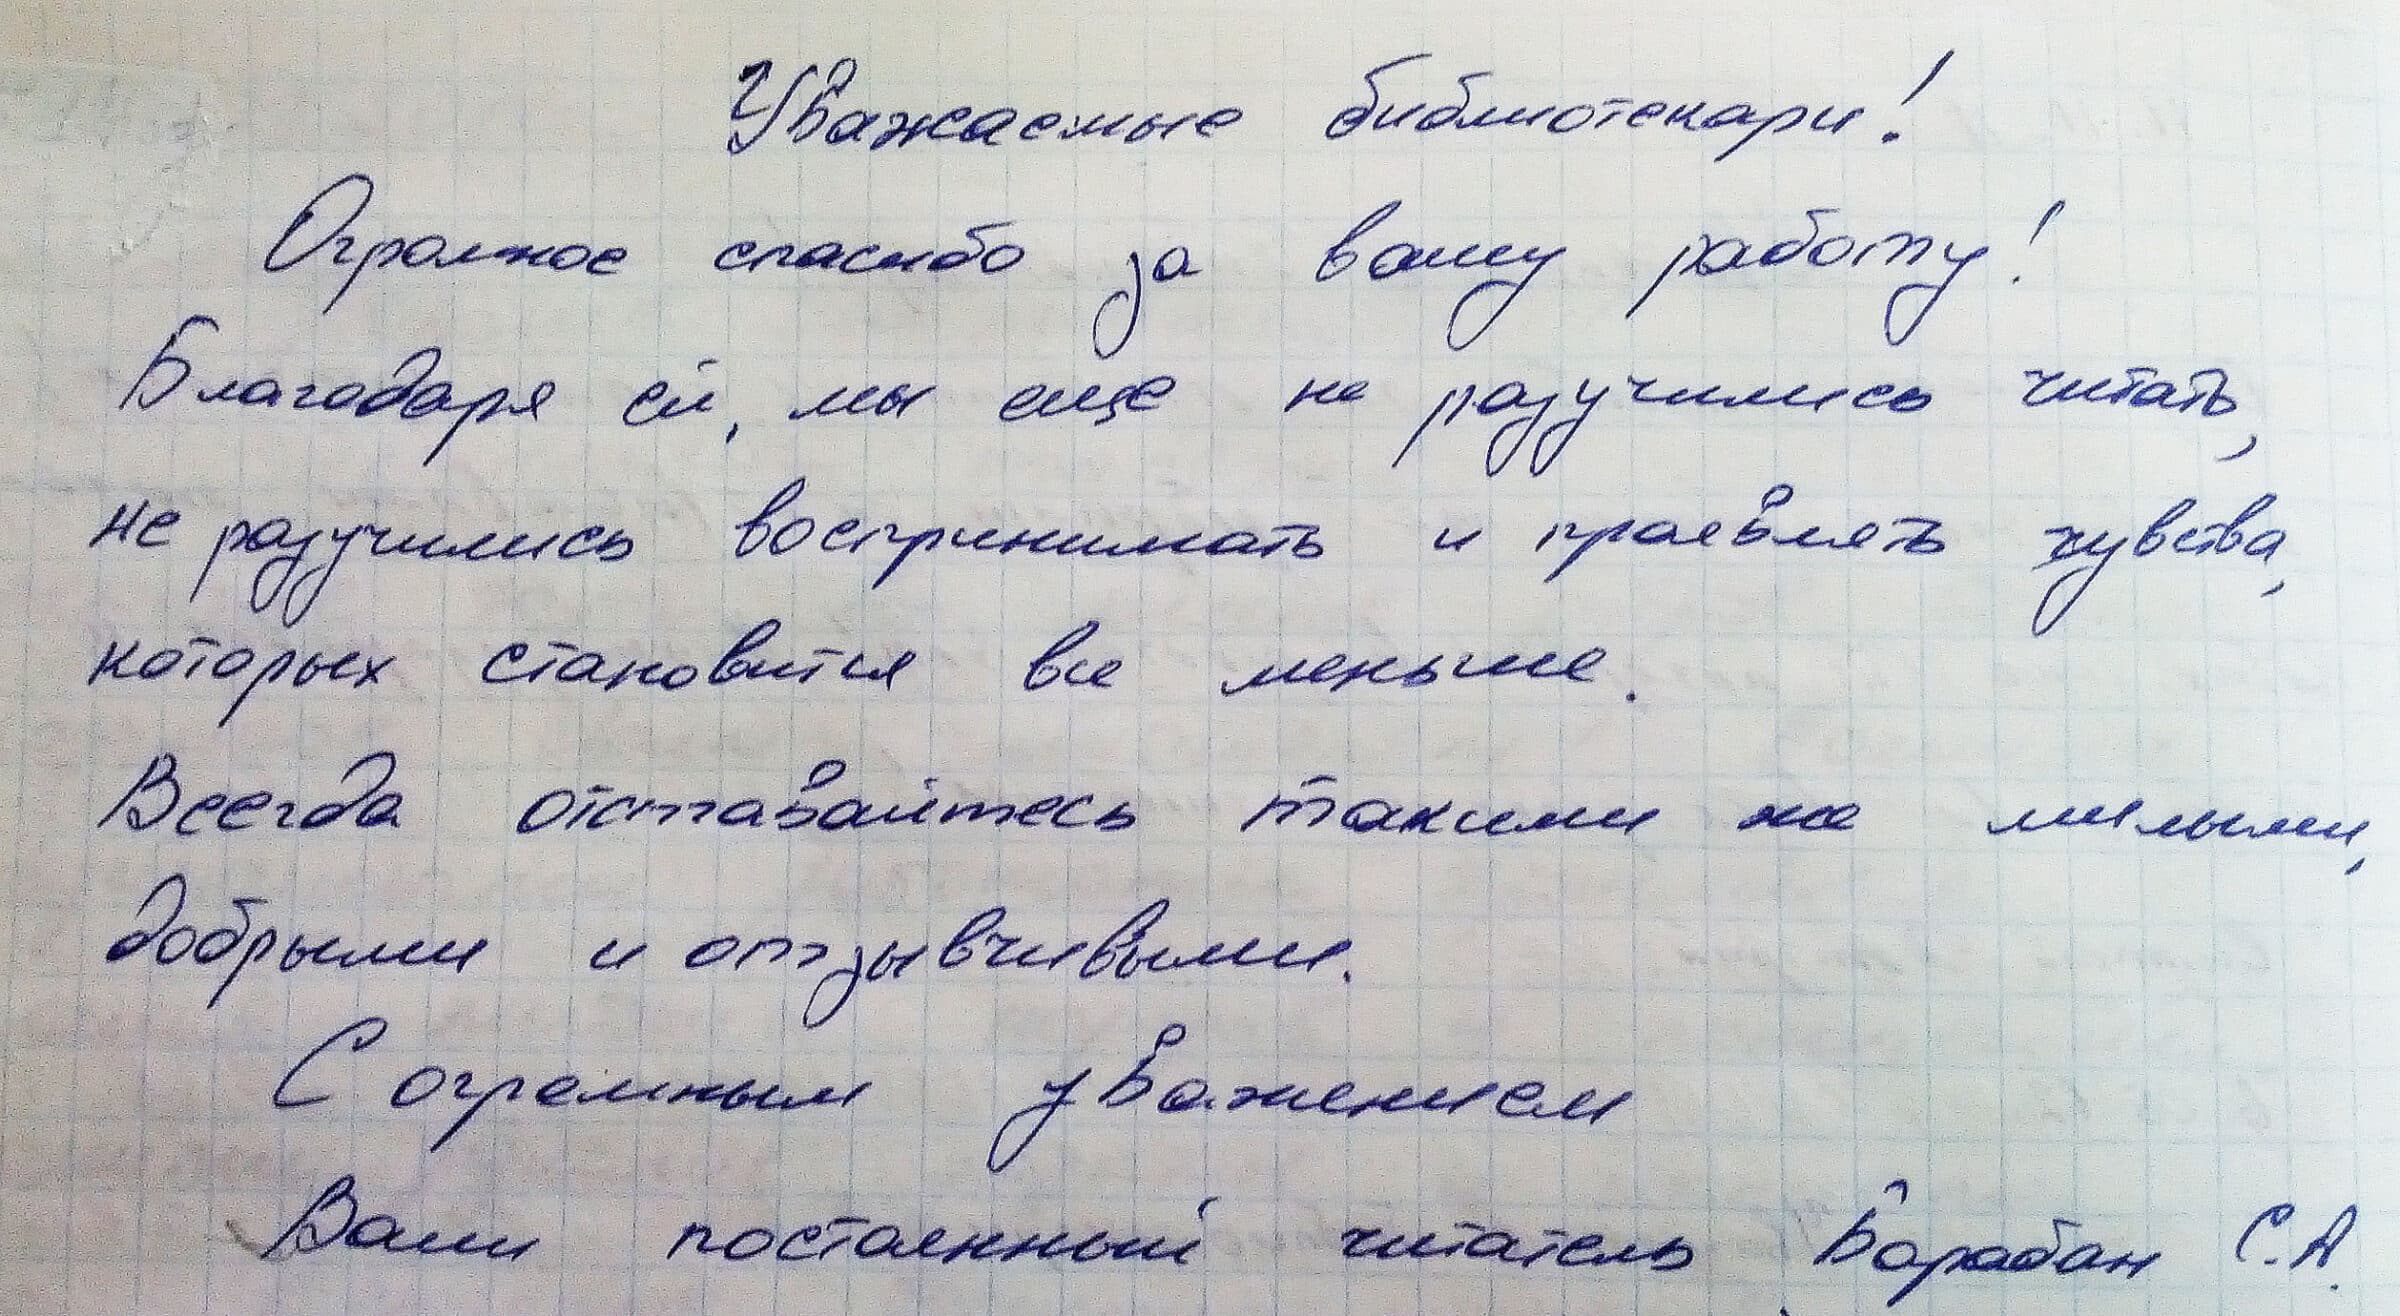 Уважаемые библиотекари!
Огромное спасибо за вашу работу!
Благодаря ей, мы еще не разучились читать,
не разучились воспринимать и проявлять чувства,
которых становится все меньше.
Всегда отставайтесь такими же милыми,
добрыми и отзывчивыми.
С огромным уважением
Ваш постоянный читатель Барабан С.А.